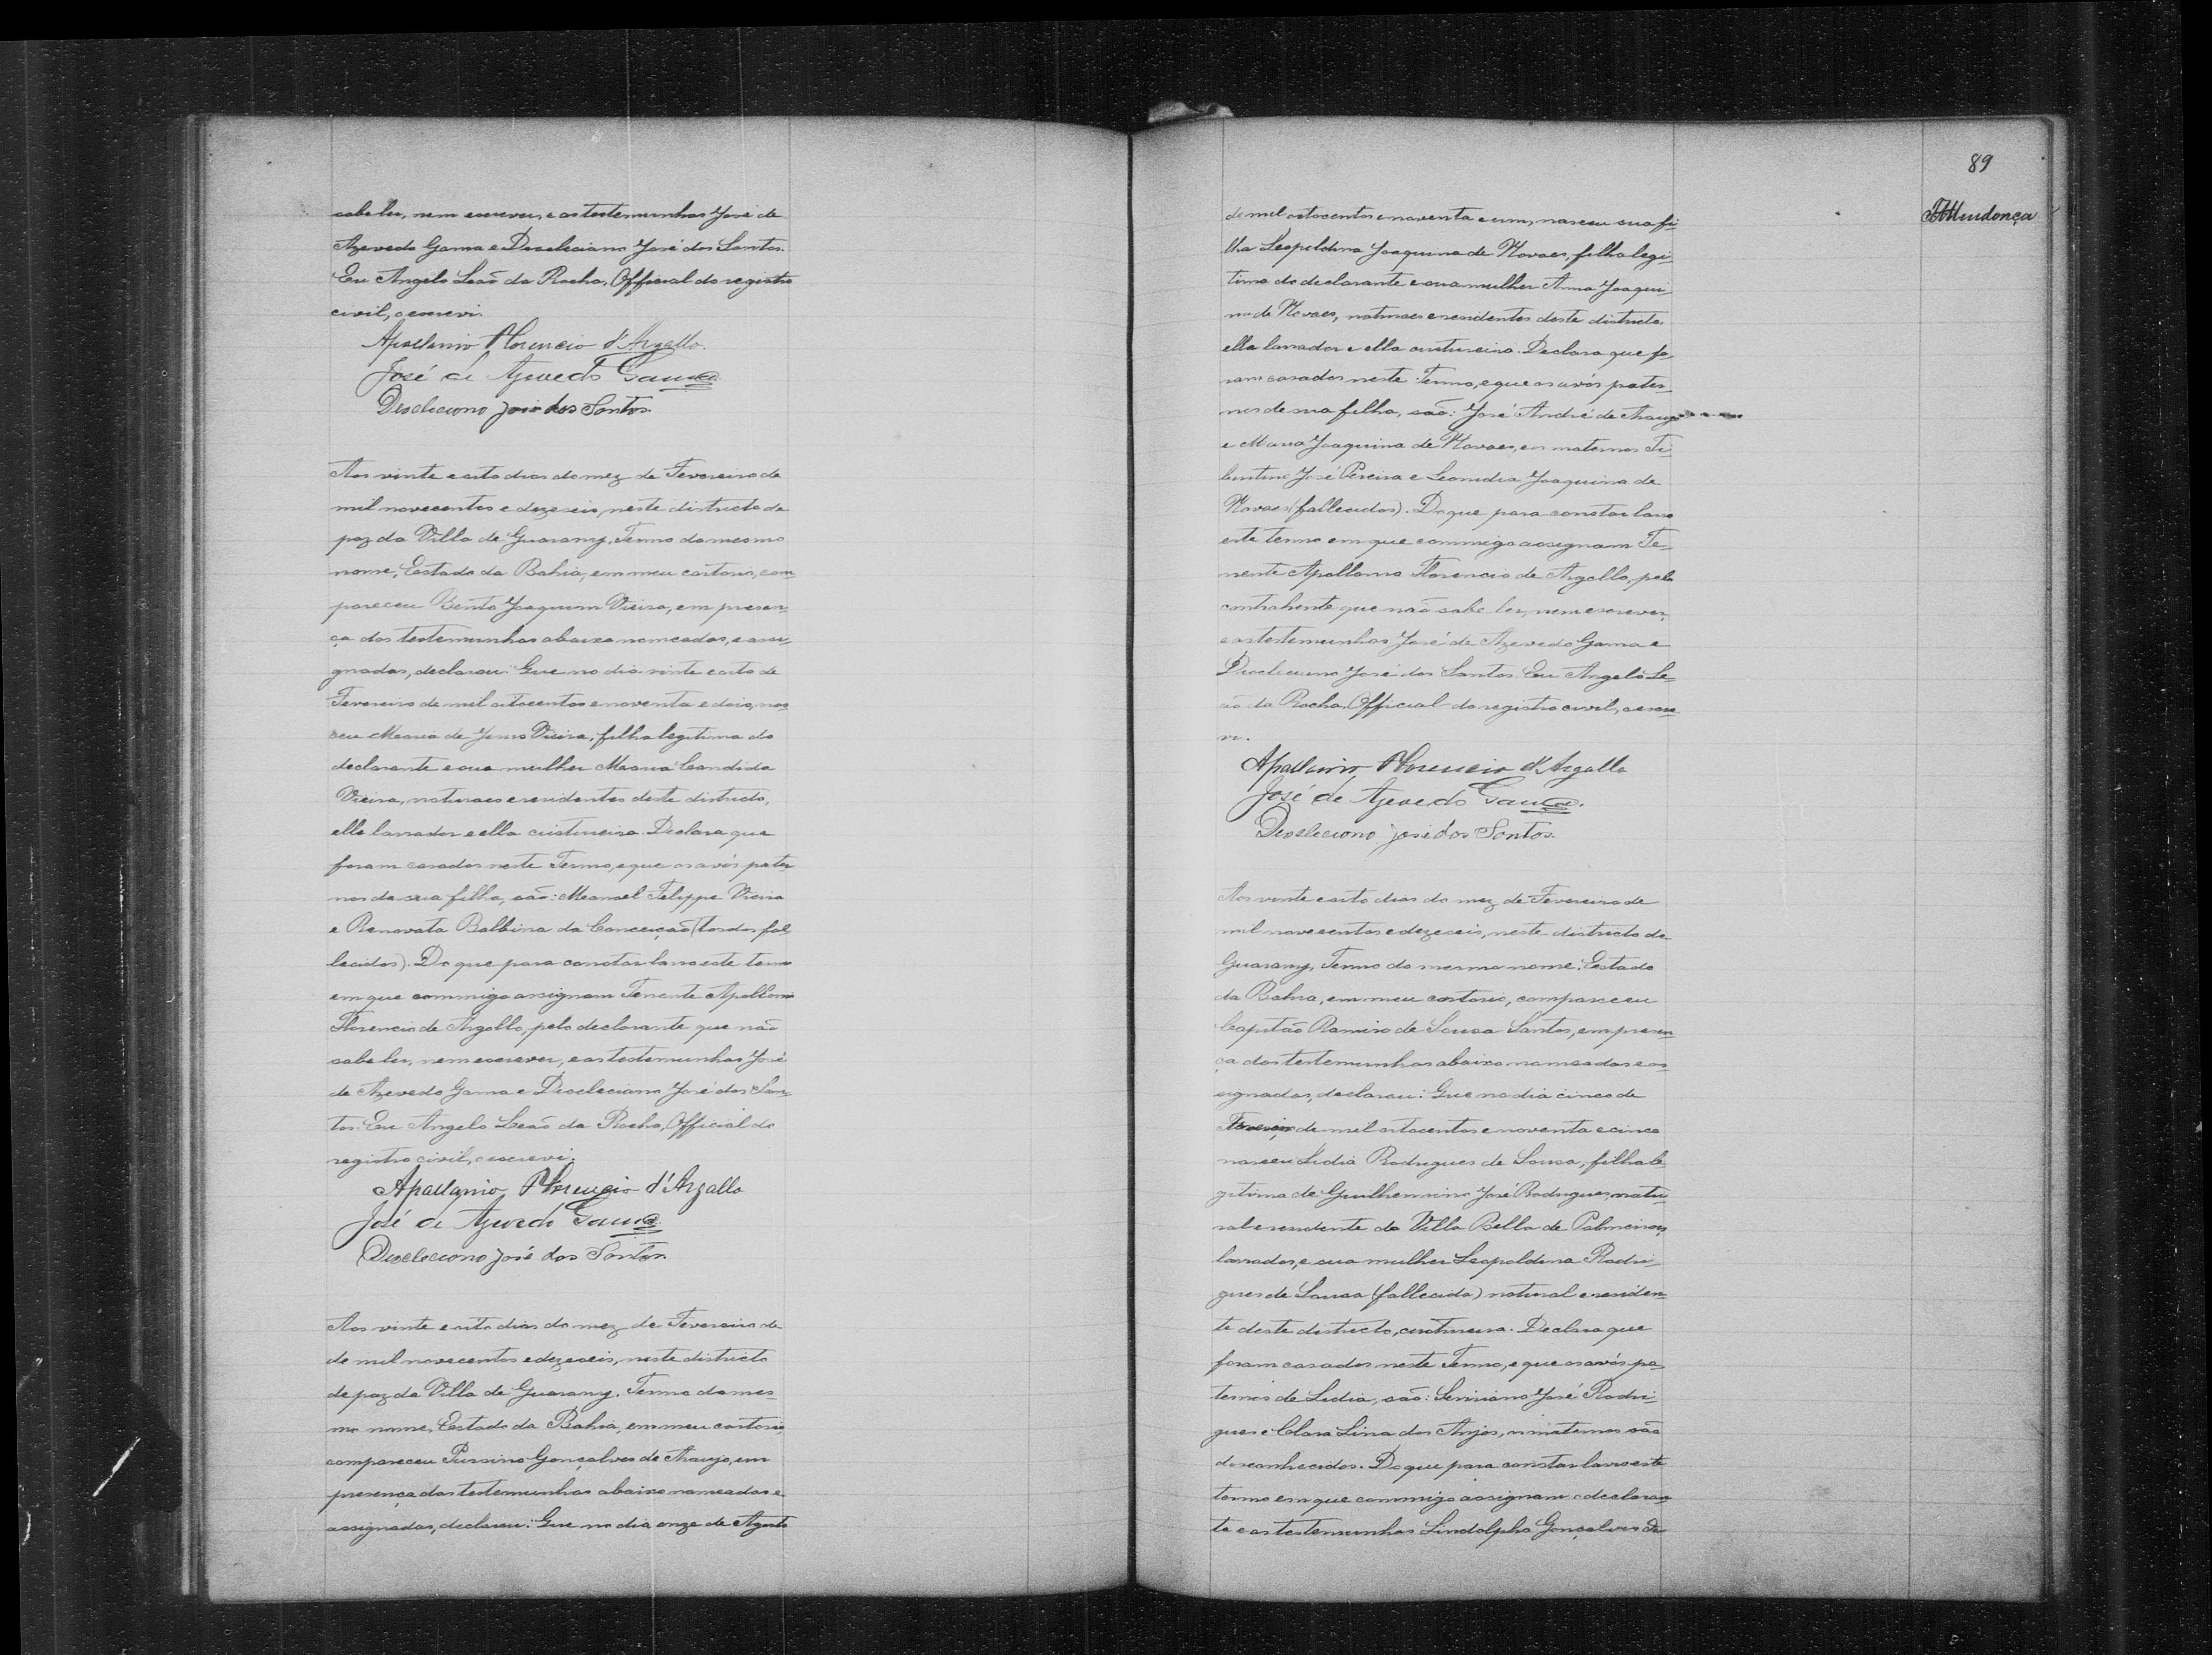 sabe ler, nem escrever, e as testemunhas José de
Azevedo Gama e Deocleciano José dos Santos.
Eu Angelo Leão da Rocha, Official do registro
civil, o escrevi.
Apollonio Florencio d'Argollo.
José de Azevedo Gama
Deocleciono José dos Santos.
Aos vinte e oito dias do mez de Fevereiro de
mil novecentos e dezeseis, neste districto de
paz da Villa de Guarany, Termo do mesmo
nome, Estado da Bahia, em meu cartorio, com-
pareceu Bento Joaquim Vieira, em presen-
ça das testemunhas abaixo nomeadas, e assi-
gnadas, declarou: Que no dia vinte e oito de
Fevereiro de mil oitocentos e noventa e dois, nas-
ceu Maria de Jesus Vieira, filha legitima do
declarante e sua mulher Maria Candida
Vieira, naturaes e residentes deste districto,
elle lavrador e ella custureira. Declara que
foram casados neste Termo, e que os avós pater-
nos de sua filha, são: Manoel Felippe Vieira
e Renovata Balbina da Conceição (todos fal-
lecidos). Do que para constar lavro este termo
em que commigo assignam Tenente Apollonio
Florencio de Argollo, pelo declarante que não
sabe ler, nem escrever, e as testemunhas José
de Azevedo Gama e Deocleciano José dos San-
tos. Eu Angelo Leão da Rocha, Official do
registro civil, o escrevi.
Apollonio Florencio d'Argollo
José de Azevedo Gama
Deocleciono José dos Santos.
Aos vinte e oito dias do mez de Fevereiro de
de mil novecentos e dezeseis, neste districto
de paz da Villa de Guarany, Termo do mes-
mo nome, Estado da Bahia, em meu cartorio,
compareceu Pursino Gonçalves de Araujo, em
presença das testemunhas abaixo nomeadas e
assignadas, declarou: Que no dia onze de Agosto
89
Mendonça
de mil oitocentos e noventa e um, nasceu sua fi-
lha Leopoldina Joaquina de Novaes, filha legi-
tima do declarante e sua mulher Anna Joaqui-
na de Novaes, naturaes e residentes deste districto,
elle lavrador e ella custureira. Declara que fo-
ram casados neste Termo, e que os avós pater-
nos de sua filha, são: José André de Araujo
e Maria Joaquina de Novaes, e os maternos Ti-
burtino José Pereira e Leonidia Joaquina de
Novaes (fallecidos). Do que para constar lavro
este termo em que commigo assignam Te-
nente Apollonio Florencio de Argollo, pelo
contrahente que não sabe ler, nem escrever,
e as testemunhas José de Azevedo Gama e
Deocleciano José dos Santos. Eu Angelo Le-
ão da Rocha, Official do registro civil, o escre-
vi.
Apollonio Florencio d'Argollo
José de Azevedo Gama.
Deocleciono José dos Santos.
Aos vinte e oito dias do mez de Fevereiro de
mil novecentos e dezeseis, neste districto de
Guarany, Termo do mesmo nome, Estado
da Bahia, em meu cartorio, compareceu
Capitão Ramiro de Sousa Santos, em presen-
ça das testemunhas abaixo nomeadas e as-
signadas, declarou: Que no dia cinco de
Fevereiro de mil oitocentos e noventa e cinco
nasceu Lidia Rodrigues de Sousa, filha le-
gitima de Guilhermino José Rodrigues, natu-
ral e residente da Villa Bella de Palmeiras,
lavrador, e sua mulher Leopoldina Rodri-
gues de Sousa (fallecida) natural e residen-
te deste districto, custureira. Declara que
foram casados neste Termo, e que os avós pa-
ternos de Lidia, são: José Rodri-
gues e Clara Lina dos Anjos, os maternos são
desconhecidos. Do que para constar lavro este
termo em que commigo assignam o declaran-
te e as testemunhas Lindolpho Gonçalves de